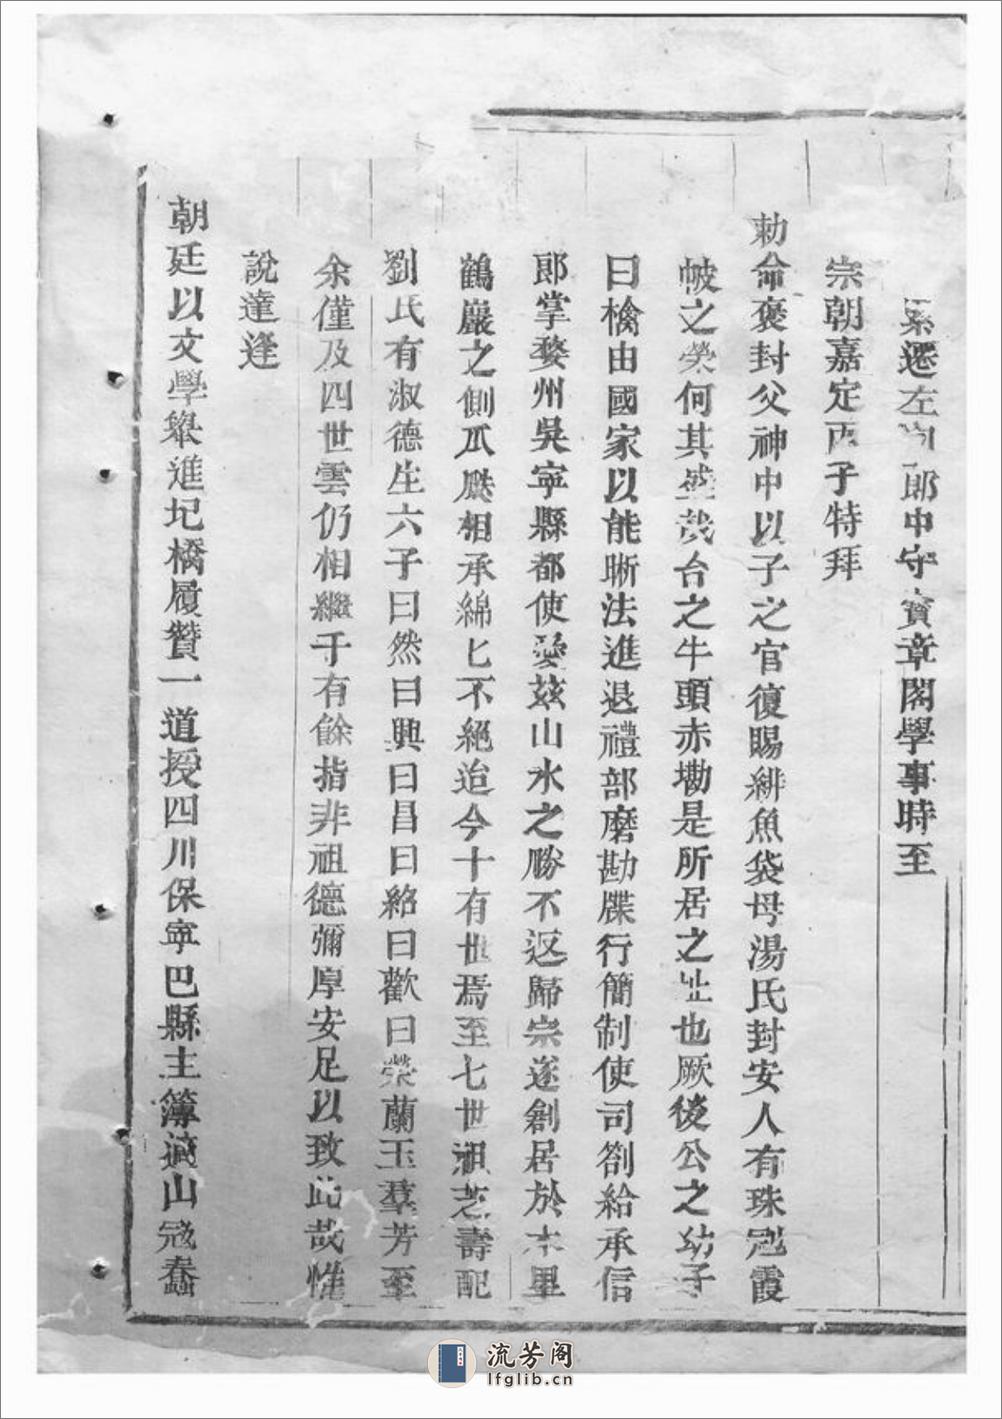 遷左郎中守寶章閣學事時至
宗朝嘉定丙子特拜
勅命褒封父神中以子之官復賜緋魚袋母湯氏封安人有珠冠霞
帔之榮何其盛哉台之牛頭赤墈是所居之址也厥後公之幼子
曰檎由國家以能晰法進退禮部磨勘牒行簡制使司劄給承信
郎掌婺州吳寧縣都使愛茲山水之勝不返歸宗遂創居於木里
鶴巖之側瓜瓞相承綿匕不絕迨今十有世焉至七世祖芝壽配
劉氏有淑德生六子曰然曰興曰昌曰紹曰歡曰榮蘭玉羣芳至
余僅及四世雲仍相繼千有餘指非祖德彌厚安足以致此哉惟
說達逢
朝廷以文學舉進圯橋履贊一道授四川保寧巴縣主簿適山冦蠢
流芳阁
lfglib.cn